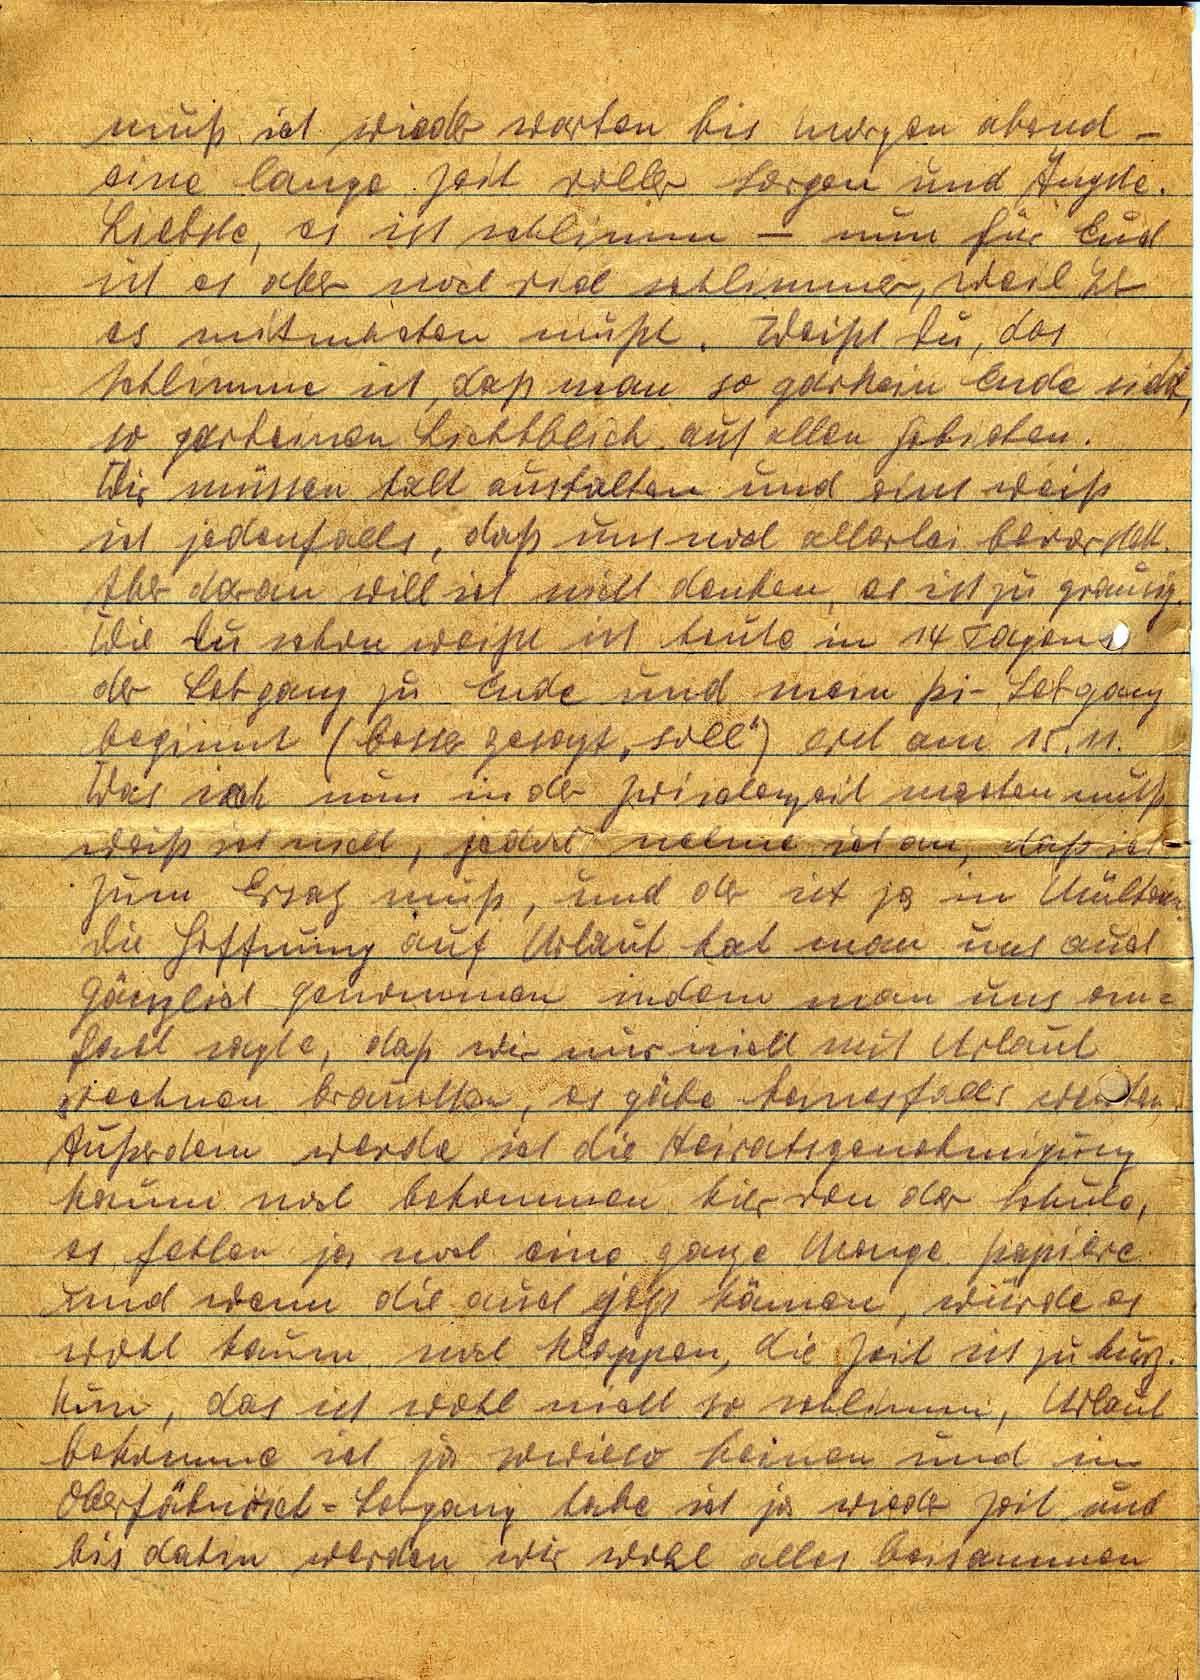 muß ich wieder warten bis morgen abend –
eine lange Zeit voller Sorgen und Ängste.
Liebste, es ist schlimm – nun für Euch
ist es aber noch viel schlimmer, weil Ihr
es mitmachen müßt. Weißt Du, das
schlimme ist, daß man so garkein Ende sieht,
so garkeinen Lichtblick auf allen Gebieten.
Wir müssen halt aushalten und eins weiß
ich jedenfalls, daß uns noch allerlei bevorsteht.
Aber daran will ich nicht denken, es ist zu grausig.
Wie Du schon weißt ist heute in 14 Tagen
der Lehgang zu Ende und mein Lehgang
beginnt (besser gesagt „soll“) erst am 15.11.
Was ich nun in der Zwischenzeit machen muß
weiß ich nicht, jedoch nehme ich an, daß ich
zum Ersatz muß, und der ist ja in
Die Hoffnung auf Urlaub hat man uns auch
gänzlich genommen indem man uns ein=
fach sagte, daß wir nur nicht mit Urlaub
rechnen brauchten, es gäbe keinesfalls
Außerdem werde ich die Heiratsgenehmigung
kaum noch bekommen hier von der Schule,
es fehlen ja noch eine ganze Menge Papiere
und wenn die auch jetzt kämen, würde es
wohl kaum noch klappen, die Zeit ist zu kurz.
Nun, das ist wohl nicht so schlimm, Urlaub
bekomme ich ja sowieso keinen und im
Oberfähnrich=Lehgang habe ich ja wieder Zeit und
bis dahin werden wir wohl alles beisammen